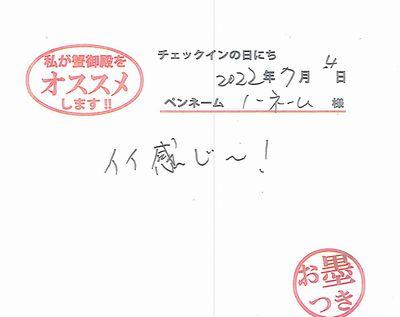 私が蟹御殿を
オススメ
します!!
チェックインの日にち
2022年7月4日
ペンネーム ノーネーム 様
イイ感じ〜!
お墨
つき